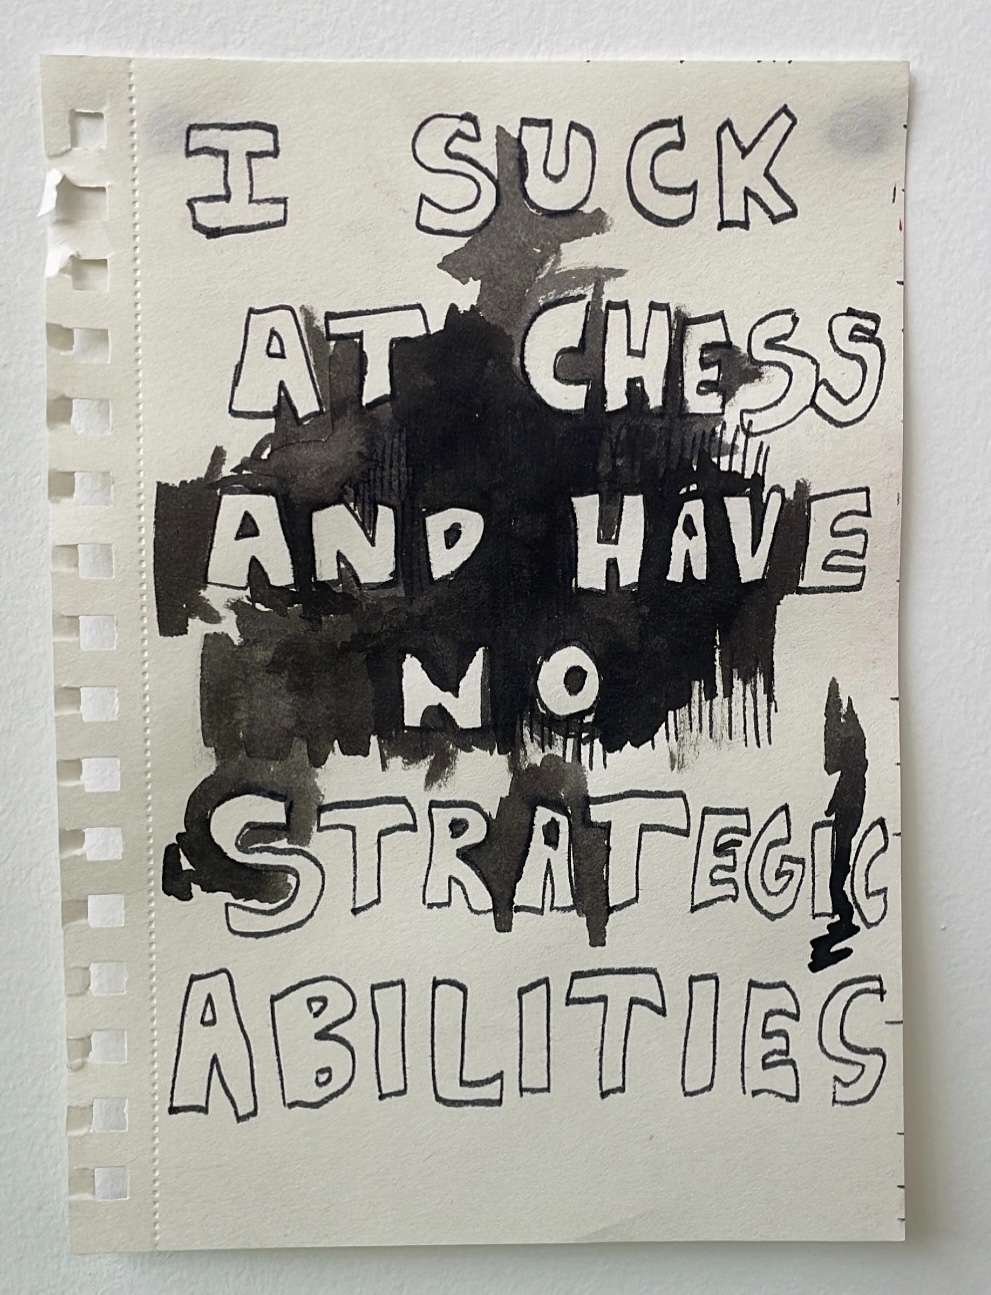 I SUCK
AT CHESS
AND HAVE
NO
STRATEGIC
ABILITIES